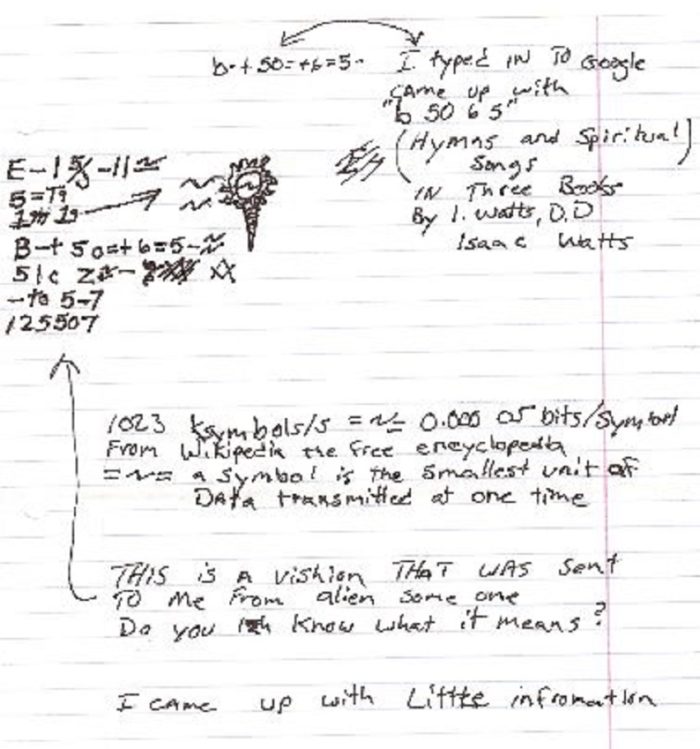 b-+50=+6=5- I typed IN TO Google
CAME up with
"b 50 6 5"
(Hymns and Spiritual)
Songs
IN Three Books
By I. Watts, D.D
Isaac Watts
5=
B-+50=+6=5-
51c
-to 5-7
125507
1023 Ksymbols/s =~= 0.000 05 bits/Symbol
From Wikipedia the free encyclopedia
=~= a Symbol is the smallest unit of
DATA transmitted at one time
THIS is A vishion THAT WAS Sent
TO Me From alien some one
Do you Know what it means?
I came up with Little infromation